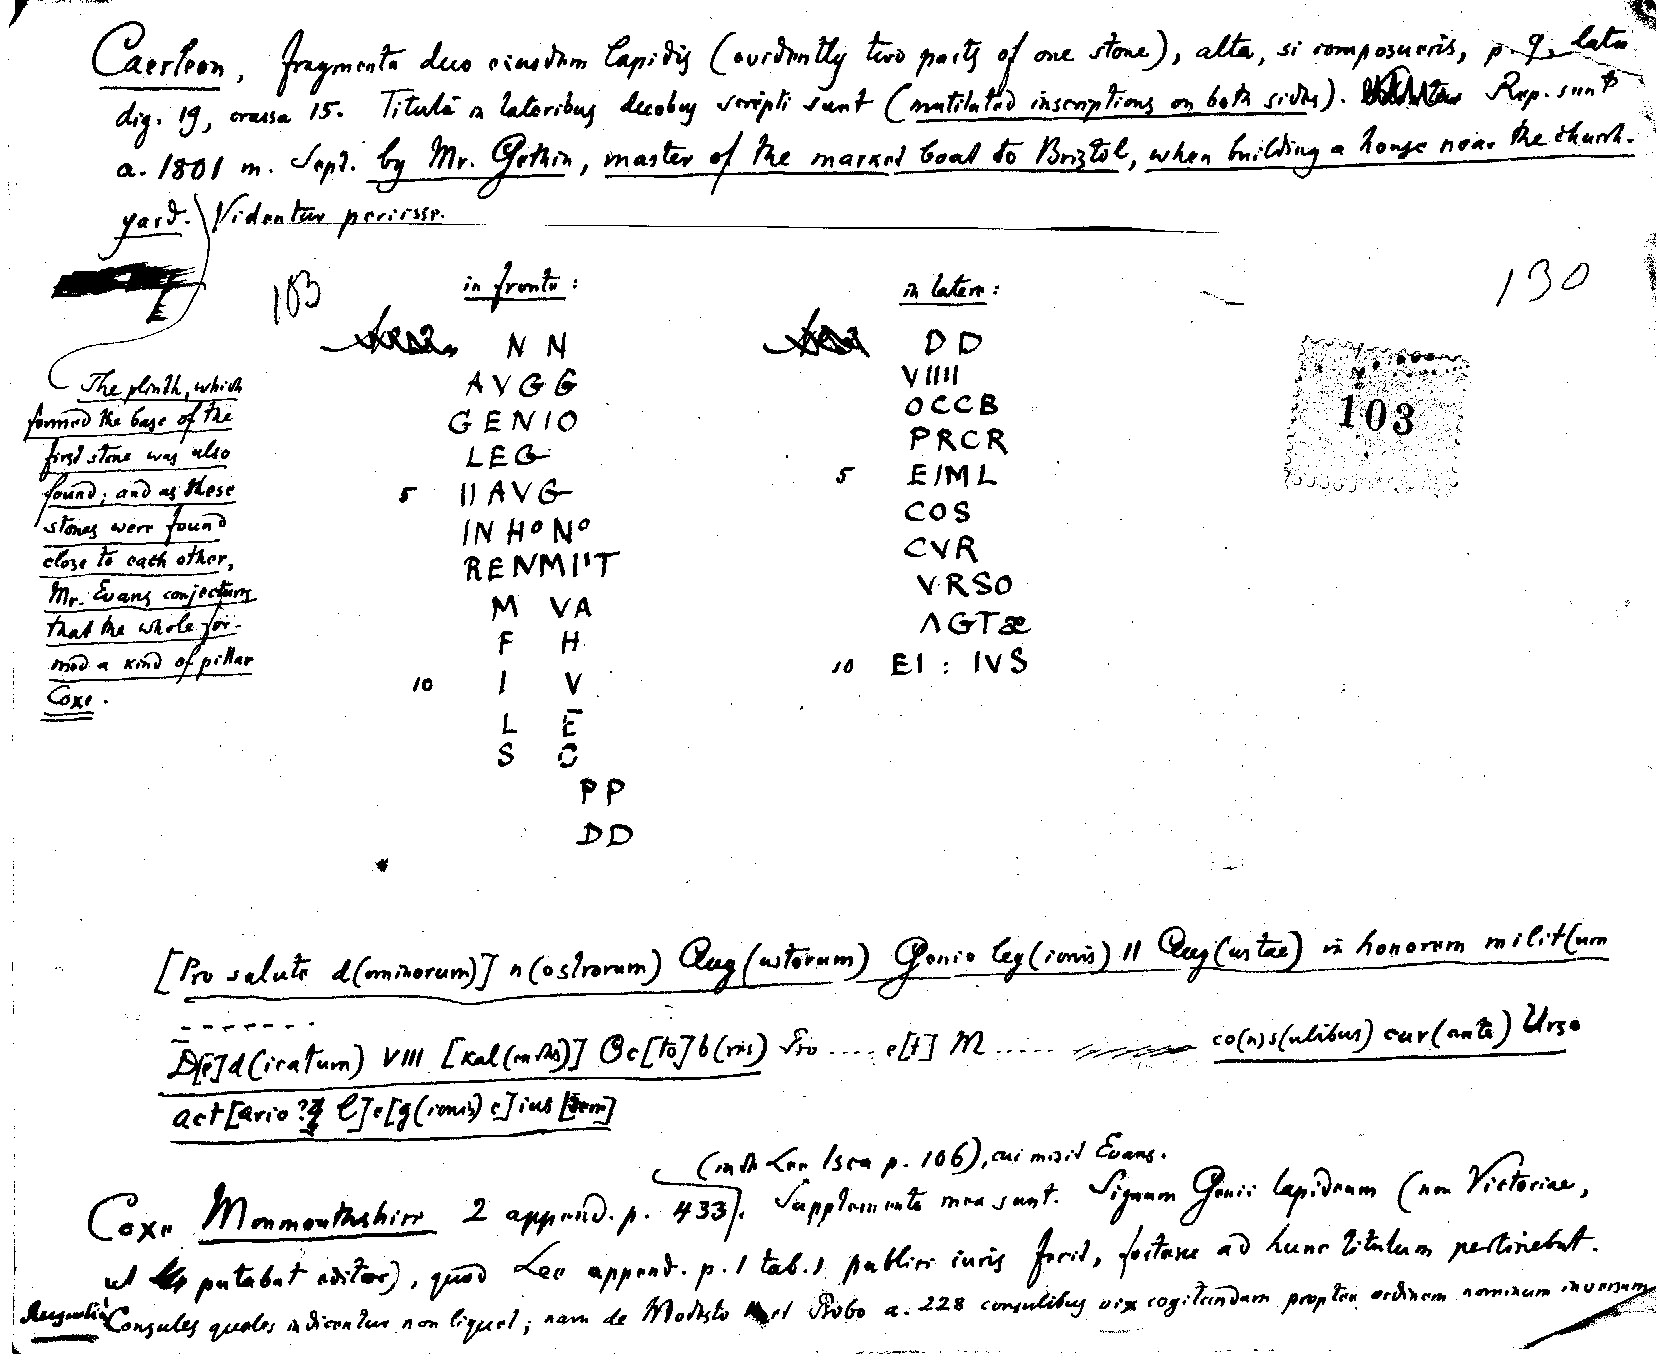 Caerleon, fragmenta duo eiusdem lapidis (evidently two parts of one stone), alta, si composueris, p. 9, lata
dig. 19, crassa 15. Tituli in lateribus duobus scripti sunt (mutilated inscriptions on both sides). Rep. sunt
a. 1801 m. Sept. by Mr. Gethin, master of the market boat to Bristol, when building a house near the church-
yard. Videntur periisse.
103
in fronte:
in latere:
130
N N
AVGG
GENIO
LEG
5 II AVG
IN HoNo
RENMI'T
M VA
F H
10 I V
L E
S C
PP
DD
DD
VIIII
OCCB
PRCR
5 EIML
COS
CVR
VRSO
ΛGTæ
10 EI : IVS
103
The plinth, which
formed the base of the
first stone was also
found; and as these
stones were found
close to each other,
Mr. Evans conjectures
that the whole for-
med a kind of pillar
Coxe.
[Pro salute d(ominorum)] n(ostrorum) Aug(ustorum) Genio leg(ionis) II Aug(ustae) in honorem milit(um
D[e]d(icatum) VIII [kal(endas)] Oc[to]b(res) Pro ..... e[t] M ...... co(n)s(ulibus) cur(ante) Urso
act[ario ? l]e[g(ionis) e]ius [dem]
(inde Lee Isca p. 106), cui misit Evans.
Coxe Monmouthshire 2 append. p. 433). Supplementa mea sunt. Signum Genii lapideum (non Victoriae,
ut putabat editor), quod Lee append. p. 1 tab. 1 publici iuris fecit, fortasse ad hunc titulum pertinebat.
Consules quales indicentur non liquet; nam de Modesto et Probo a. 228 consulibus vix cogitandum propter ordinem nominum inversum